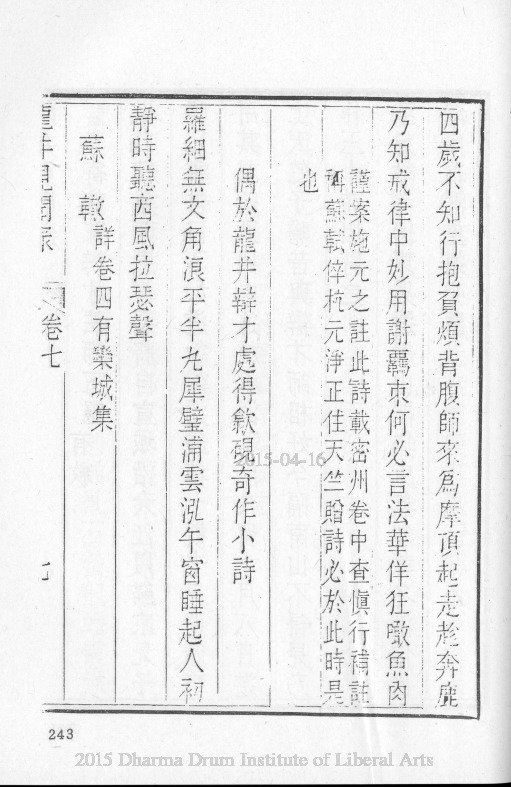 四歲不知行抱負煩背腹師來爲摩頂起走趁奔鹿
乃知戒律中妙用謝羈束何必言法華佯狂噉魚肉
謹案施元之註此詩載密州卷中查愼行補註
稱蘇軾倅杭元淨正住天竺贈詩必於此時是
也
偶於龍井辯才處得歙硯奇作小詩
羅細無文角浪平半丸犀璧浦雲泓午窗睡起人初
靜時聽西風拉瑟聲
蘇轍詳卷四有欒城集
龍井見聞錄 卷七 七
243
2015-04-16
2015 Dharma Drum Institute of Liberal Arts